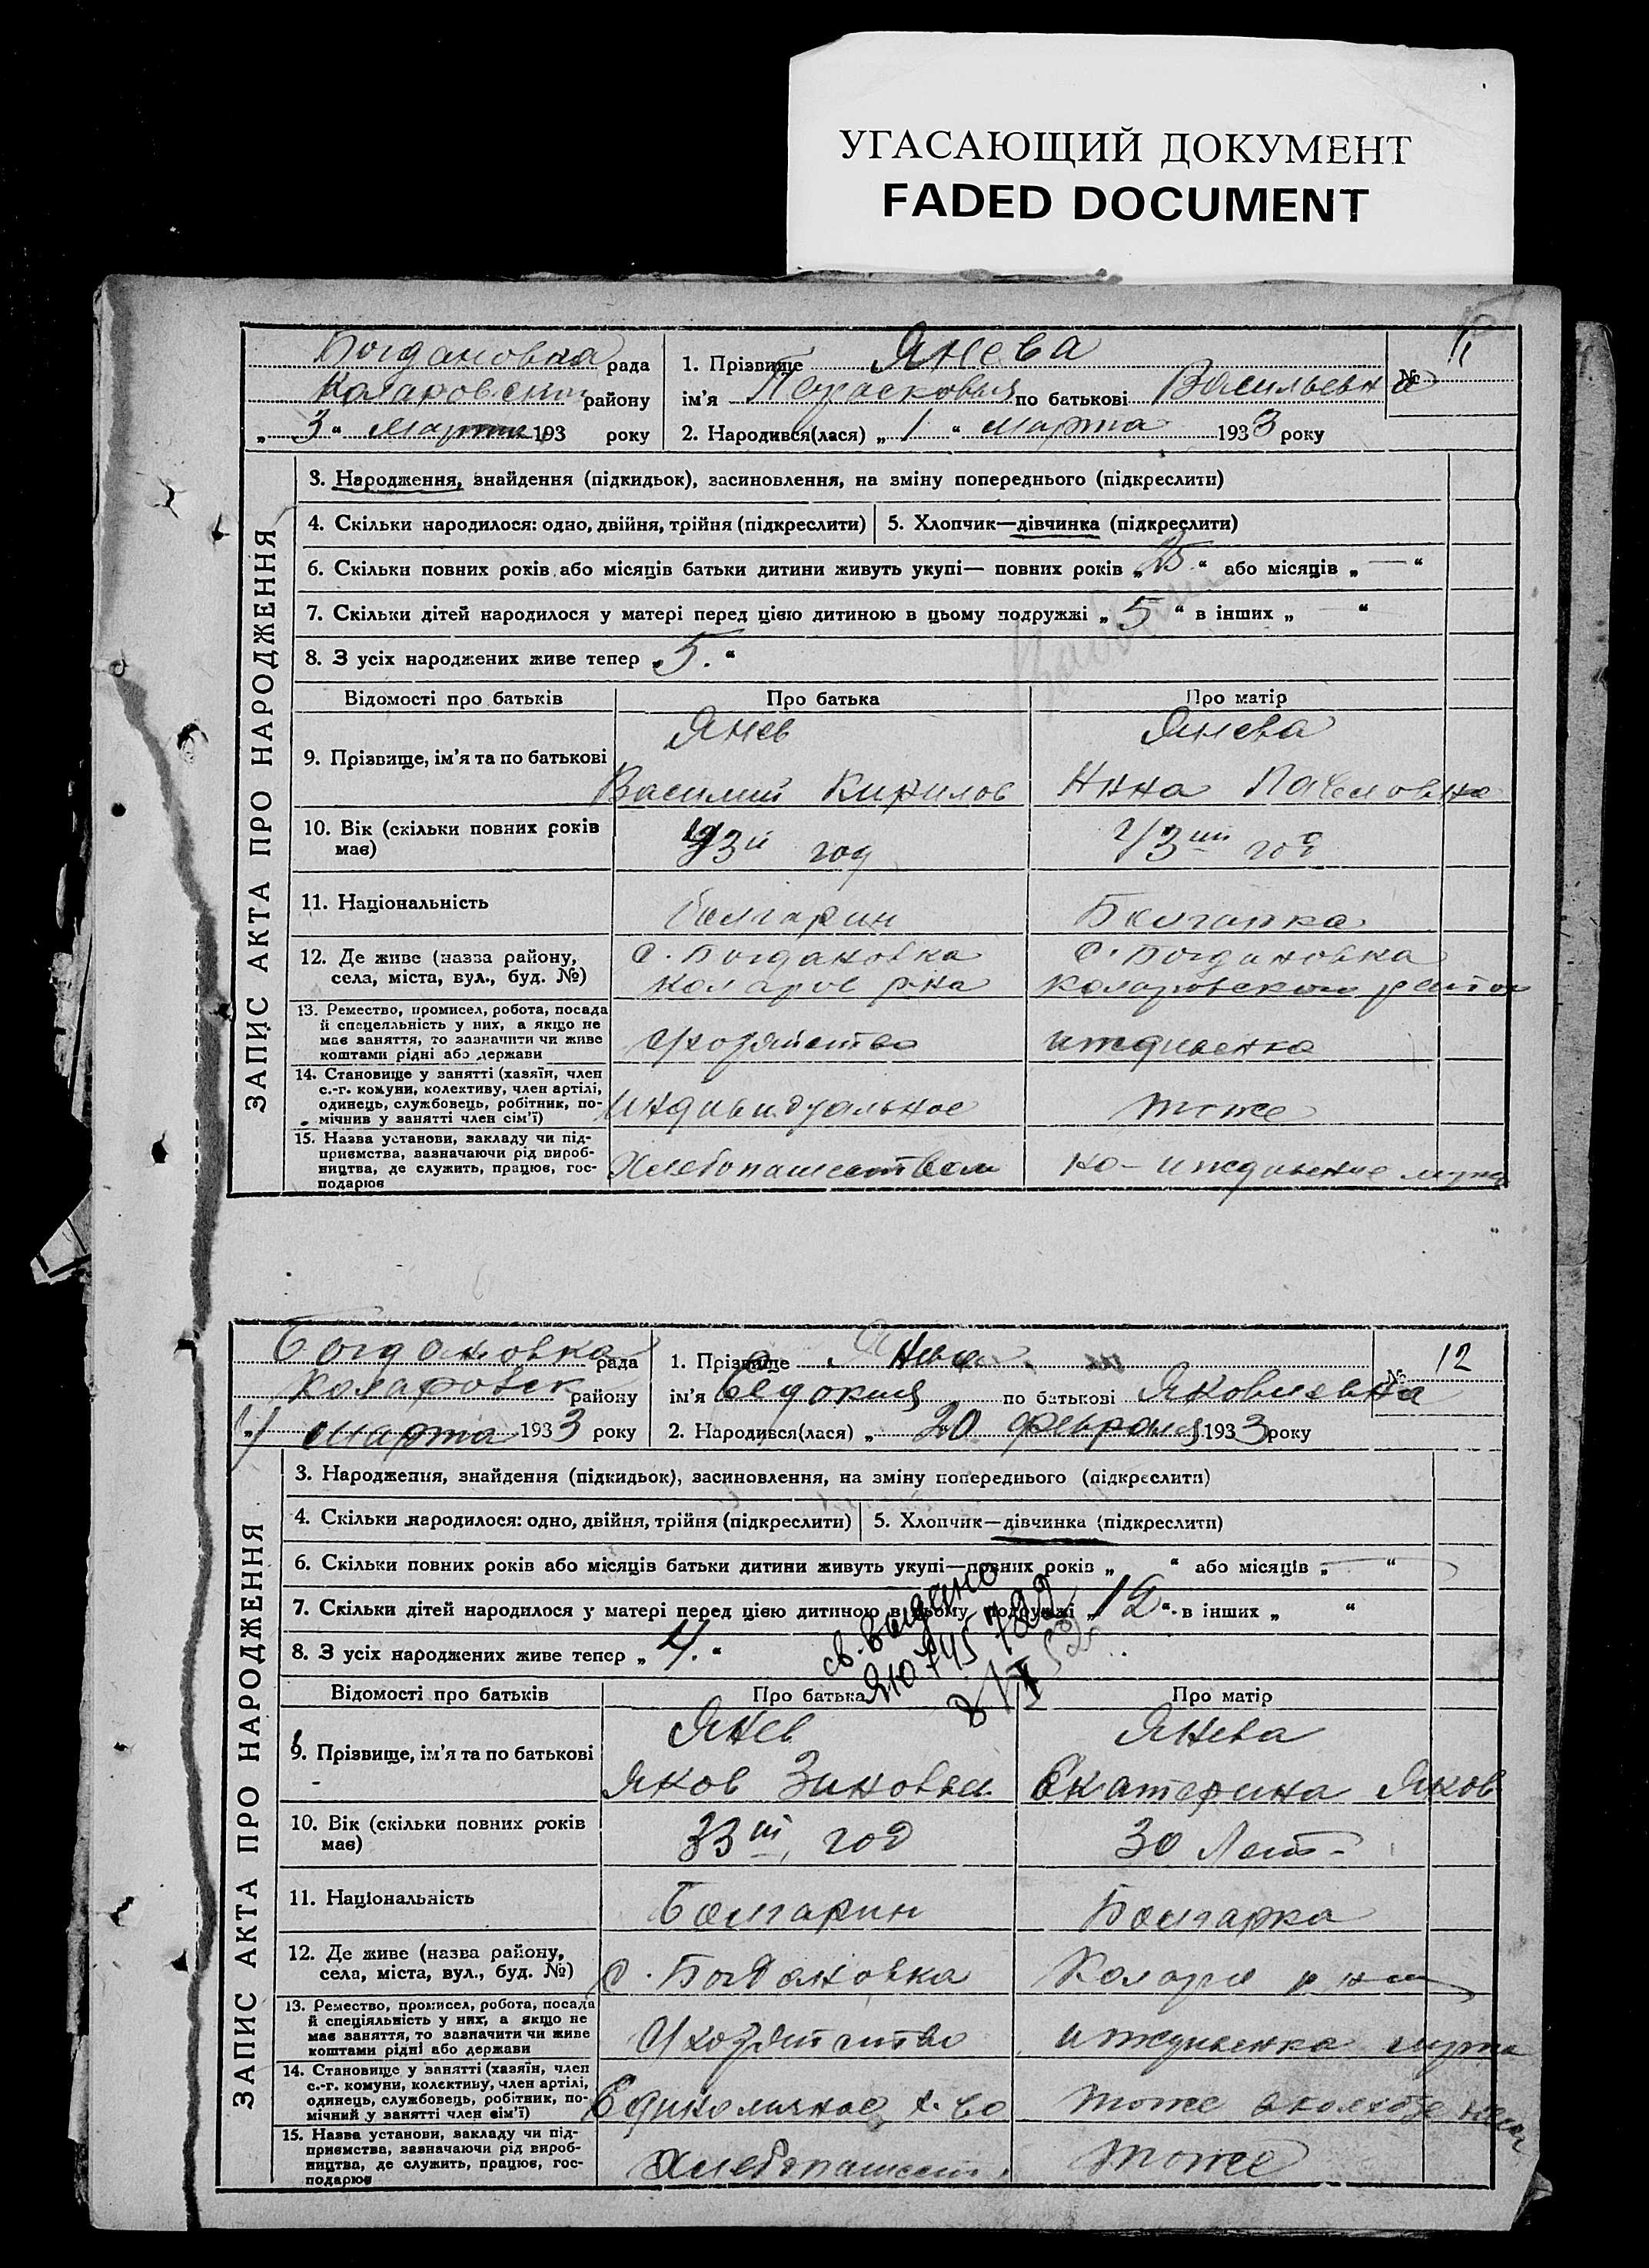 УГАСАЮЩИЙ ДОКУМЕНТ
FADED DOCUMENT
Богдановка рада
Коларовский району
„ 3 “ Марта 193 року
1. Прізвище Янева
ім'я Парасковья по батькові Васильевна
№ 11
2. Народився(лася) „ 1 “ марта 1933 року
ЗАПИС АКТА ПРО НАРОДЖЕННЯ
3. Народження, знайдення (підкидьок), засиновлення, на зміну попереднього (підкреслити)
4. Скільки народилося: одно, двійня, трійня (підкреслити) 5. Хлопчик—дівчинка (підкреслити)
6. Скільки повних років або місяців батьки дитини живуть укупі— повних років „ “ або місяців „ — “
7. Скільки дітей народилося у матері перед цією дитиною в цьому подружжі „ 5 “ в інших „ “
8. З усіх народжених живе тепер „ 5. “
Відомості про батьків Про батька Про матір
9. Прізвище, ім'я та по батькові
Янев
Василий Кирилов
Янева
Анна Павловна
10. Вік (скільки повних років має)
43й год
43ий год
11. Національність
болгарин
Болгарка
12. Де живе (назва району,
села, міста, вул., буд. №)
с. Богдановка
Коларов р-на
с. Богдановка
Коларовском
13. Ремество, промисел, робота, посада
й спецеяльність у них, а якщо не
має заняття, то зазначити чи живе
коштами рідні або держави
хозяйство
иждивенка
14. Становище у занятті (хазяїн, член
с.-г. комуни, колективу, член артілі,
одинець, службовець, робітник, по-
мічнив у занятті член сім'ї)
индивидуальное
тоже
15. Назва установи, закладу чи під-
приємства, зазначаючи рід вироб-
ництва, де служить, працює, гос-
подарює
Хлебопашеством
на иждивение мужа
Богдановка рада
Коларовск району
4 марта 1933 року
1. Прізвище Янева
ім'я Евдокия по батькові Яковлевна
№ 12
2. Народився(лася) „ 20 февраля 1933 року
ЗАПИС АКТА ПРО НАРОДЖЕННЯ
3. Народження, знайдення (підкидьок), засиновлення, на зміну попереднього (підкреслити)
4. Скільки народилося: одно, двійня, трійня (підкреслити) 5. Хлопчик—дівчинка (підкреслити)
6. Скільки повних років або місяців батьки дитини живуть укупі—повних років „ “ або місяців „ “
7. Скільки дітей народилося у матері перед цією дитиною в цьому подружжі „ 12 “ в інших „ “
8. З усіх народжених живе тепер „ 4. “
св. выдано
Відомості про батьків Про батька Про матір
9. Прізвище, ім'я та по батькові
Янев
Яков Зиновьев
Янева
Екатерина Яков
10. Вік (скільки повних років має)
33ий год
30 Лет
11. Національність
Болгарин
Болгарка
12. Де живе (назва району,
села, міста, вул., буд. №)
с. Богдановка
Коларов
13. Ремество, промисел, робота, посада
й спеціяльність у них, а якщо не
має заняття, то зазначити чи живе
коштами рідні або держави
хозяйство
иждивенка мужа
14. Становище у занятті (хазяїн, член
с.-г. комуни, колективу, член артілі,
одинець, службовець, робітник, по-
мічний у занятті член сім'ї)
Единоличное х-во
тоже
15. Назва установи, закладу чи під-
приємства, зазначаючи рід вироб-
ництва, де служить, працює, гос-
подарює
Хлебопашест.
тоже